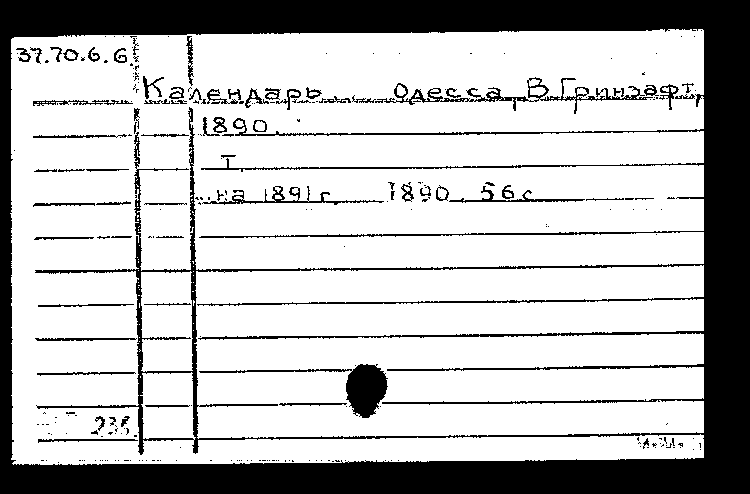 37.70.6.6.
Календарь... Одесса, В. Гринзафт,
1890.
Т.
...на 1891 г. 1890. 56 с.